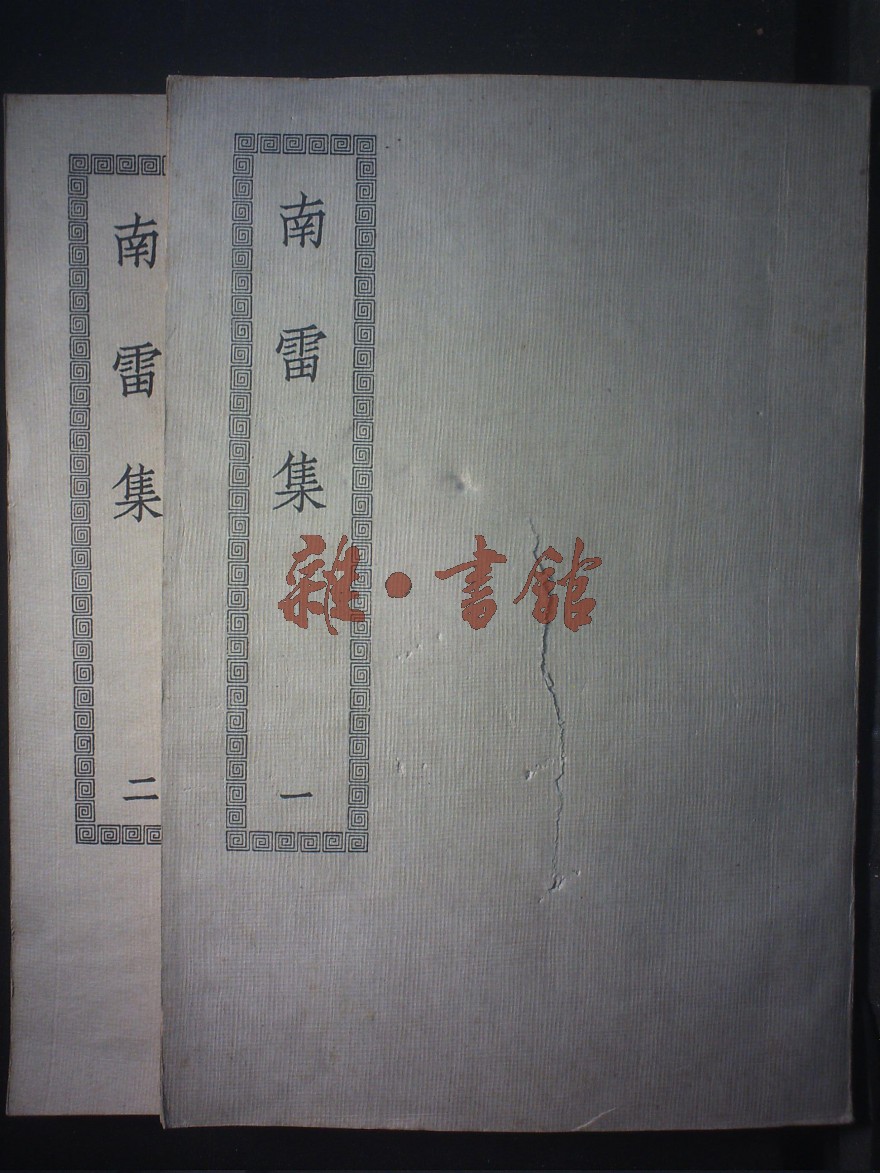 南雷集
一
南雷集
二
雜·書館